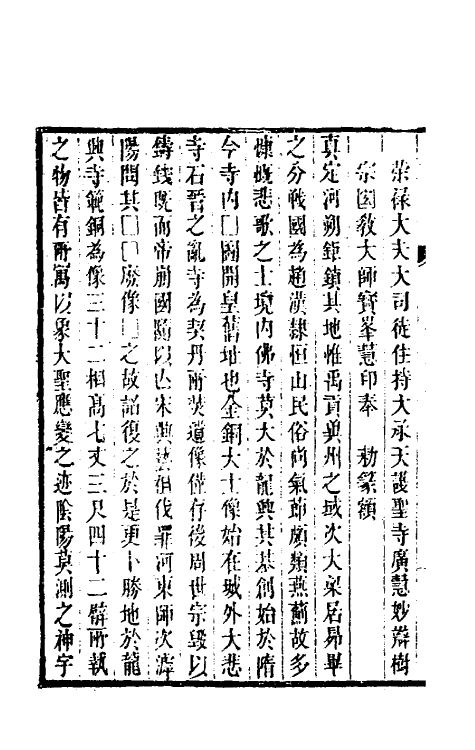 榮祿大夫大司徒住持大承天護聖寺廣慧妙辯樹
宗圓教大師寶峯慧印奉　勑篆額
真定河朔鉅鎮其地惟禹貢冀州之域次大梁居昴畢
之分戰國為趙漢隸恒山民俗尚氣節頗類燕薊故多
慷慨悲歌之士境内佛寺莫大於龍興其基創始於隋
今寺内□□圖開皇舊址也金銅大士像始在城外大悲
寺石晉之亂寺為契丹所焚遺像僅存後周世宗毀以
鑄錢既而帝崩國隨以亾宋興藝祖伐罪河東師次滹
陽問其□□廢像□之故詔復之於是更卜勝地於龍
興寺範銅為像三十二相高七丈三尺四十二臂所執
之物皆有所寓以象大聖應變之迹陰陽莫測之神宇